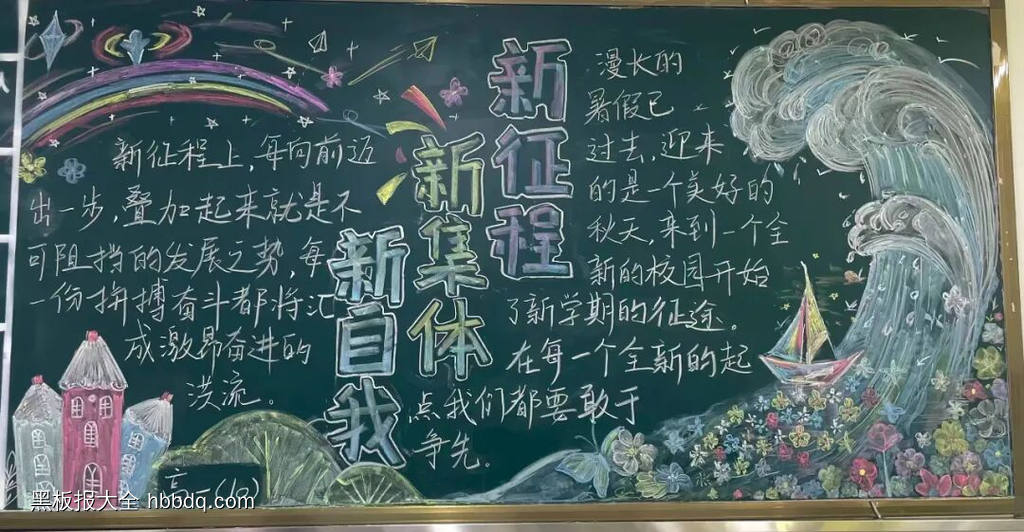 新征程
新集体
新自我
漫长的
暑假已
过去,迎来
的是一个美好的
秋天,来到一个全
新的校园开始
了新学期的征途。
在每一个全新的起
点我们都要敢于
争先。
新征程上,每向前迈
出一步,叠加起来就是不
可阻挡的发展之势,每
一份拼搏奋斗都将汇
成激昂奋进的
洪流。
高一(10)
黑板报大全 hbbdq.com